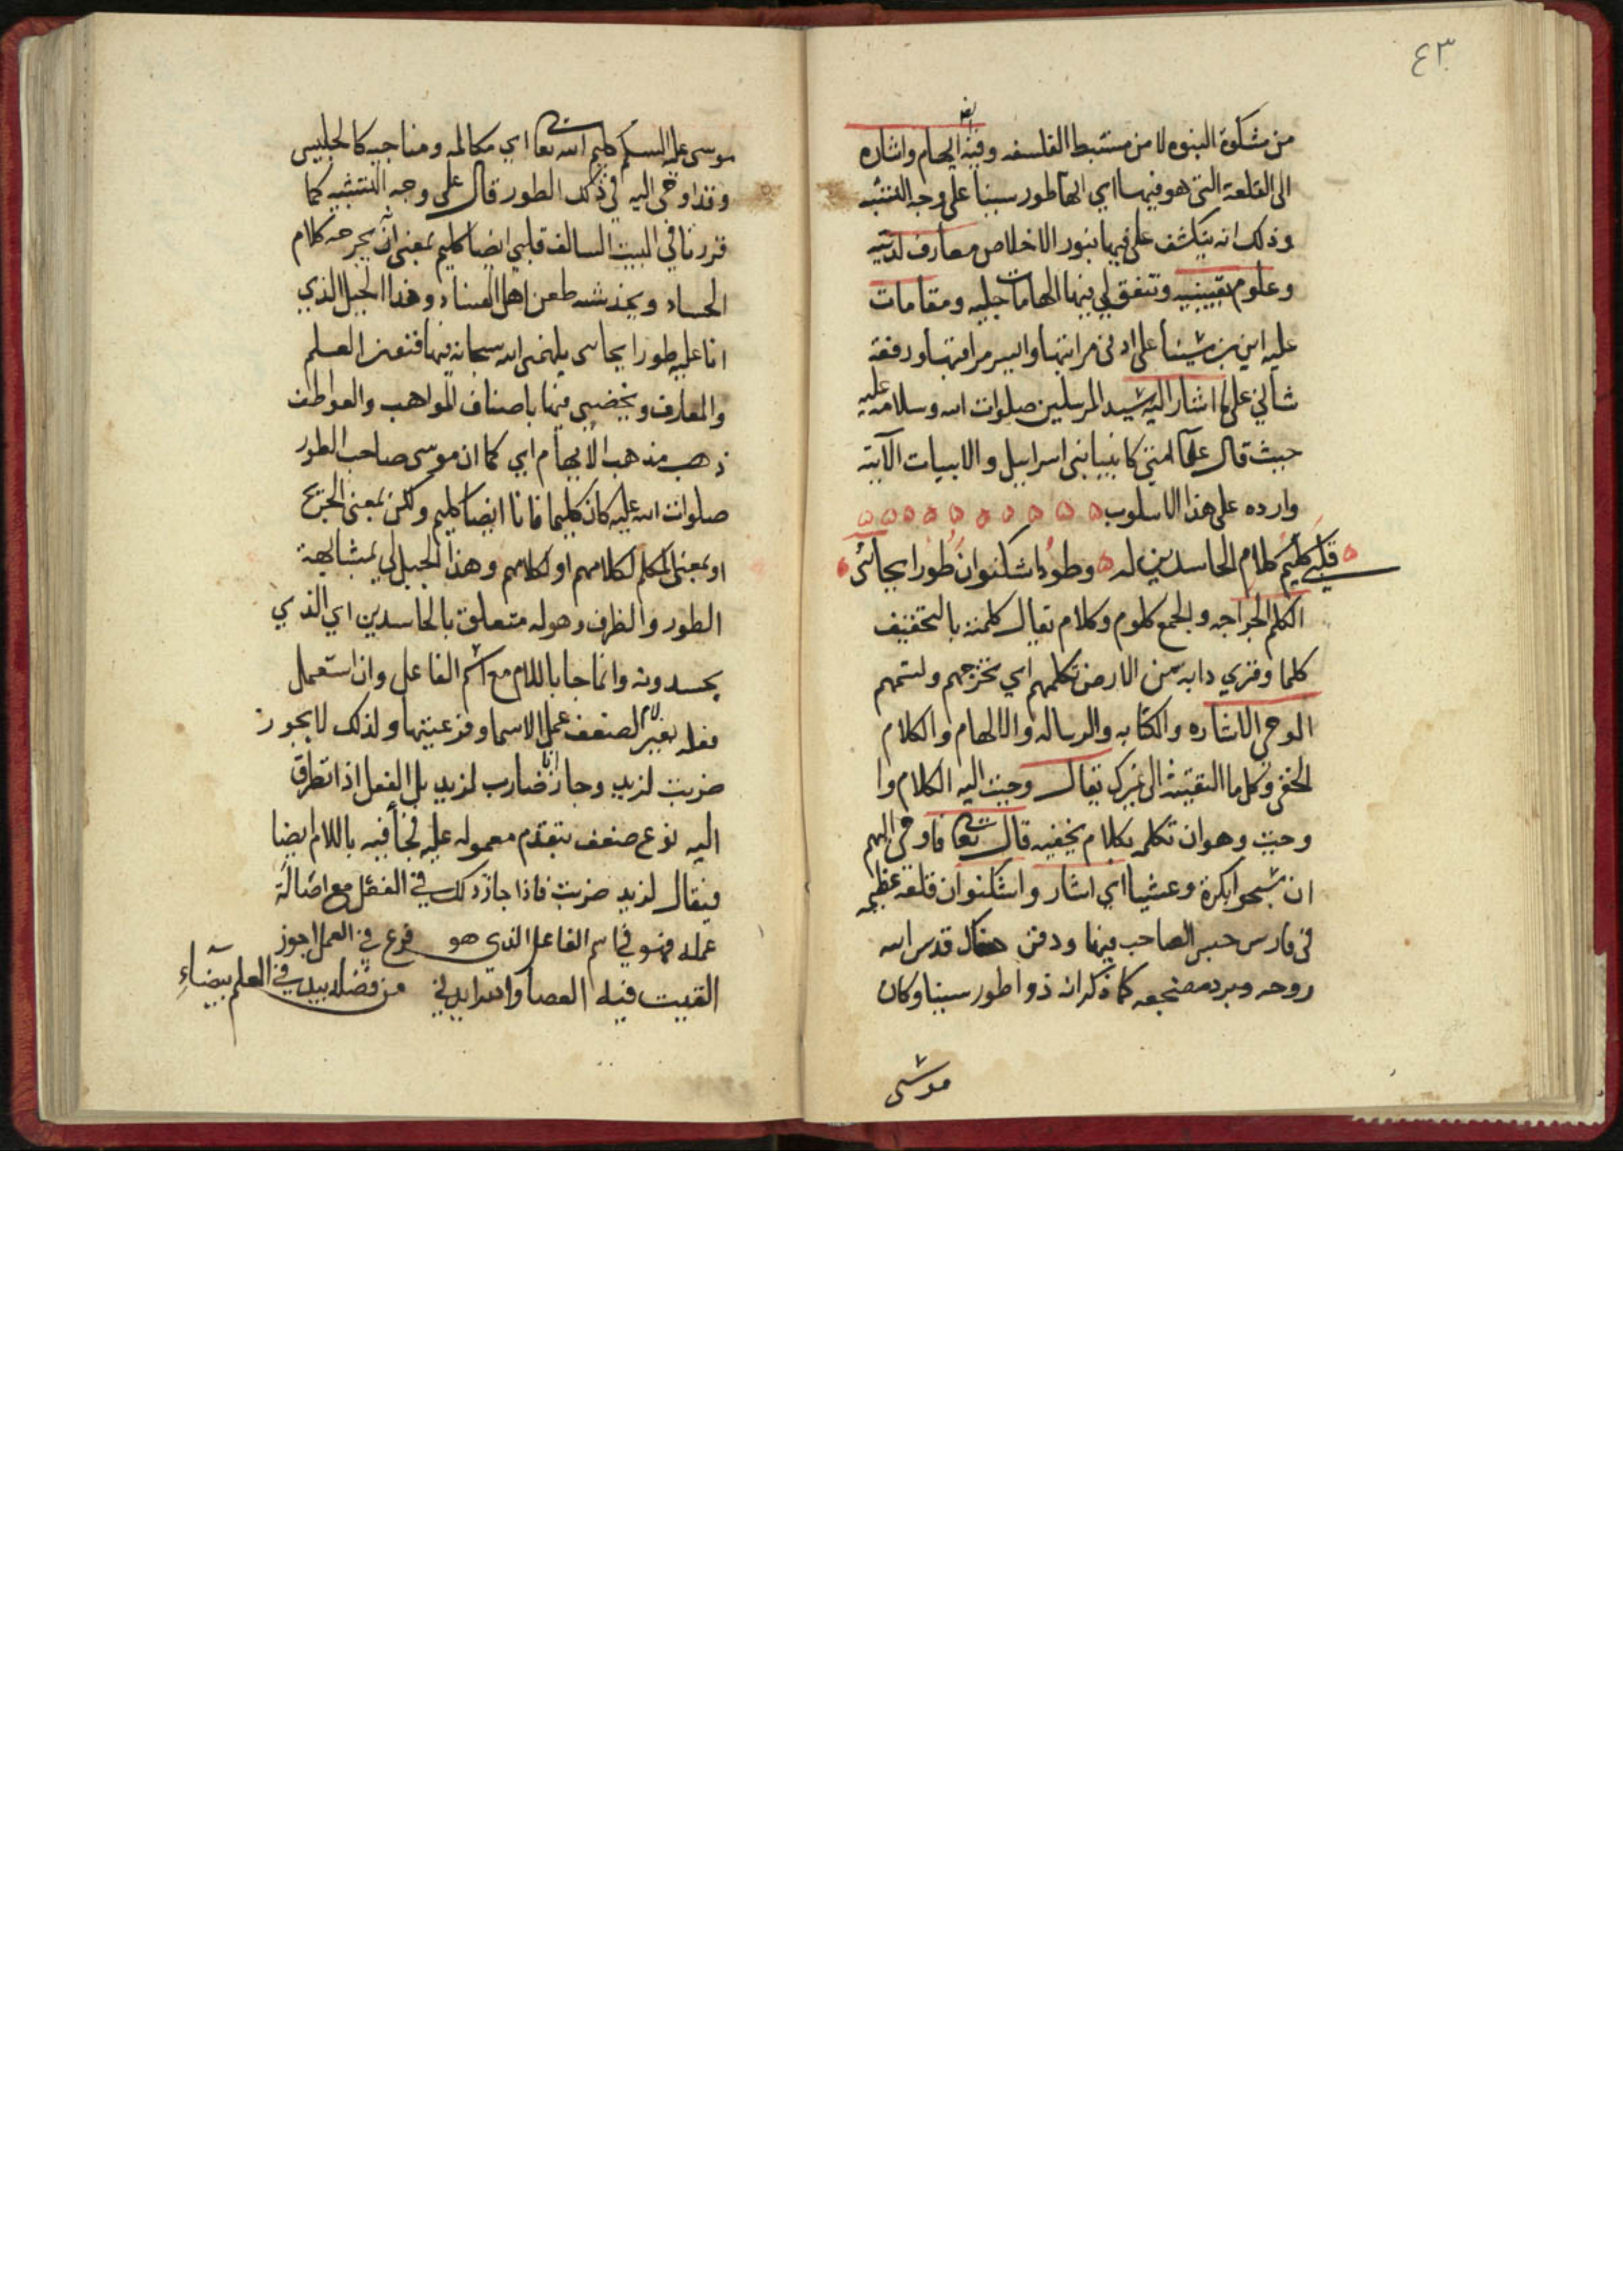 ٤٣
من مشكوة النبوه لا من مستنبط الفلسفه وفيه ايهام واشاره
الى القلعة التى هو فيها اي انها طور سينا على وجه التشبيه
وذلك انه ينكشف على فيها بنور الاخلاص معارف لدنيه
وعلوم يقينيه وتتفق لي فيها الهامات جليه ومقامات
عليه اين بن سينا على ادنى مراتبها وايسر مراقيها ورفعة
شأني على ما اشار اليه سيد المرسلين صلوات الله وسلامه عليه
حيث قال علما امتي كانبيا بنى اسراييل والابيات الآتيه
وارده على هذا الاسلوب
قلبي كليم كلام الحاسدين له وطود اشكنوان طور ايحائى
الكلم الجراحه والجمع كلوم وكلام يقال كلمته بالتخفيف
كلما وقري دابة من الارض تكلمهم اي تجرحهم وتسمهم
الوحي الاشاره والكتابه والرساله والالهام والكلام
الخفي وكل ما القيته الى غيرك يقال وحيت اليه الكلام وا
وحيت وهو ان تكلمه بكلام يخفيه قال تعا فاوحى اليهم
ان سبحوا بكرة وعشيا اي اشار واشكنوان قلعه عظيمه
فى فارس حبس الصاحب فيها ودفن هناك قدس الله
روحه وبرد مضجعه كما ذكر انه ذو اطور سينا وكان
موسى
موسى عليه السلم كليم الله تعا اي مكالمه ومناجيه كالجليس
وقد اوحى اليه في ذلك الطور قال على وجه التشبيه كما
قررنا في البيت السالف قلبي ايضا كليم بمعنى انه يجرحه كلام
الحساد ويخدشه طعن اهل العناد وهذا الجبل الذي
انا عليه طور ايحاىى يلهمنى الله سبحانه فيها فنون العلم
والمعارف ويخصني فيها باصناف المواهب والعواطف
ذهب مذهب الايهام اي كما ان موسى صاحب الطور
صلوات الله عليه كان كليما فانا ايضا كليم ولكن بمعنى الجريح
او بمعنى المكلم لكلامهم او لكلامهم وهذا الجبل لي بمشابهة
الطور والظرف وهو له متعلق بالحاسدين اي الذي
يحسدونه وانما جا باللام مع اسم الفاعل وان استعمل
فعله بغير لام لضعف عمل الاسما وفرعيتها ولذلك لا يجوز
ضربت لزيد وجاز انا ضارب لزيد بل الفعل اذا تطرق
اليه نوع ضعف بتقدم معموله عليه فجأ فيه باللام ايضا
فيقال لزيد ضربت فاذا جاز ذلك في الفعل مع اصالة
عمله فهو في اسم الفاعل الذي هو فرع في العمل اجوز
القيت فيه العصا والله ايدني من فضله بيد في العلم بيضاء